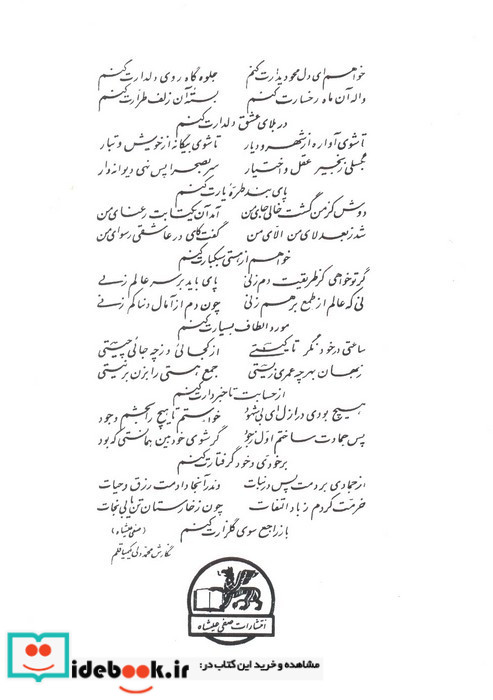 خواهم ای دل محو دیدارت کنم جلوه گاه روی دلدارت کنم
واله آن ماه رخسارت کنم بستهٔ آن زلف طرارت کنم
در بلای عشق دلدارت کنم
تا شوی آواره از شهر و دیار تا شوی بیگانه از خویش و تبار
بگسلی زنجیر عقل و اختیار سر بصحرا پس نهی دیوانه وار
پای بند طرهٔ یارت کنم
دوش کز من گشت خالی جای من آمد آن یکتا بت رعنای من
شد ز بعد لای من الای من گفت کای در عاشقی رسوای من
خواهم از هستی سبکبارت کنم
گر تو خواهی کز طریقت دم زنی پای باید بر سر عالم زنی
نی که عالم از طمع بر هم زنی چون دم از آمال دنیا کم زنی
مورد الطاف بسیارت کنم
ساعتی در خود نگر تا کیستی از کجائی وز چه جائی چیستی
در جهان بهر چه عمری زیستی جمع هستی را بزن بر نیستی
از حسابت تا خبردارت کنم
هیچ بودی در ازل ای بی شهود خواستم تا هیچ را بخشم وجود
پس جمادت ساختم اول ز جود گر شوی خودبین همانستی که بود
بر خودی خود گرفتارت کنم
از جمادی بردمت پس در نبات وندر آنجا دادمت رزق و حیات
خرمت کردم ز باد التفات چون ز خارستان تن یابی نجات
باز راجع سوی گلزارت کنم
(صفی علیشاه)
نگارش محمد ولی کیمیا قلم
انتشارات صفی علیشاه
idebook.ir
مشاهده و خرید این کتاب در: